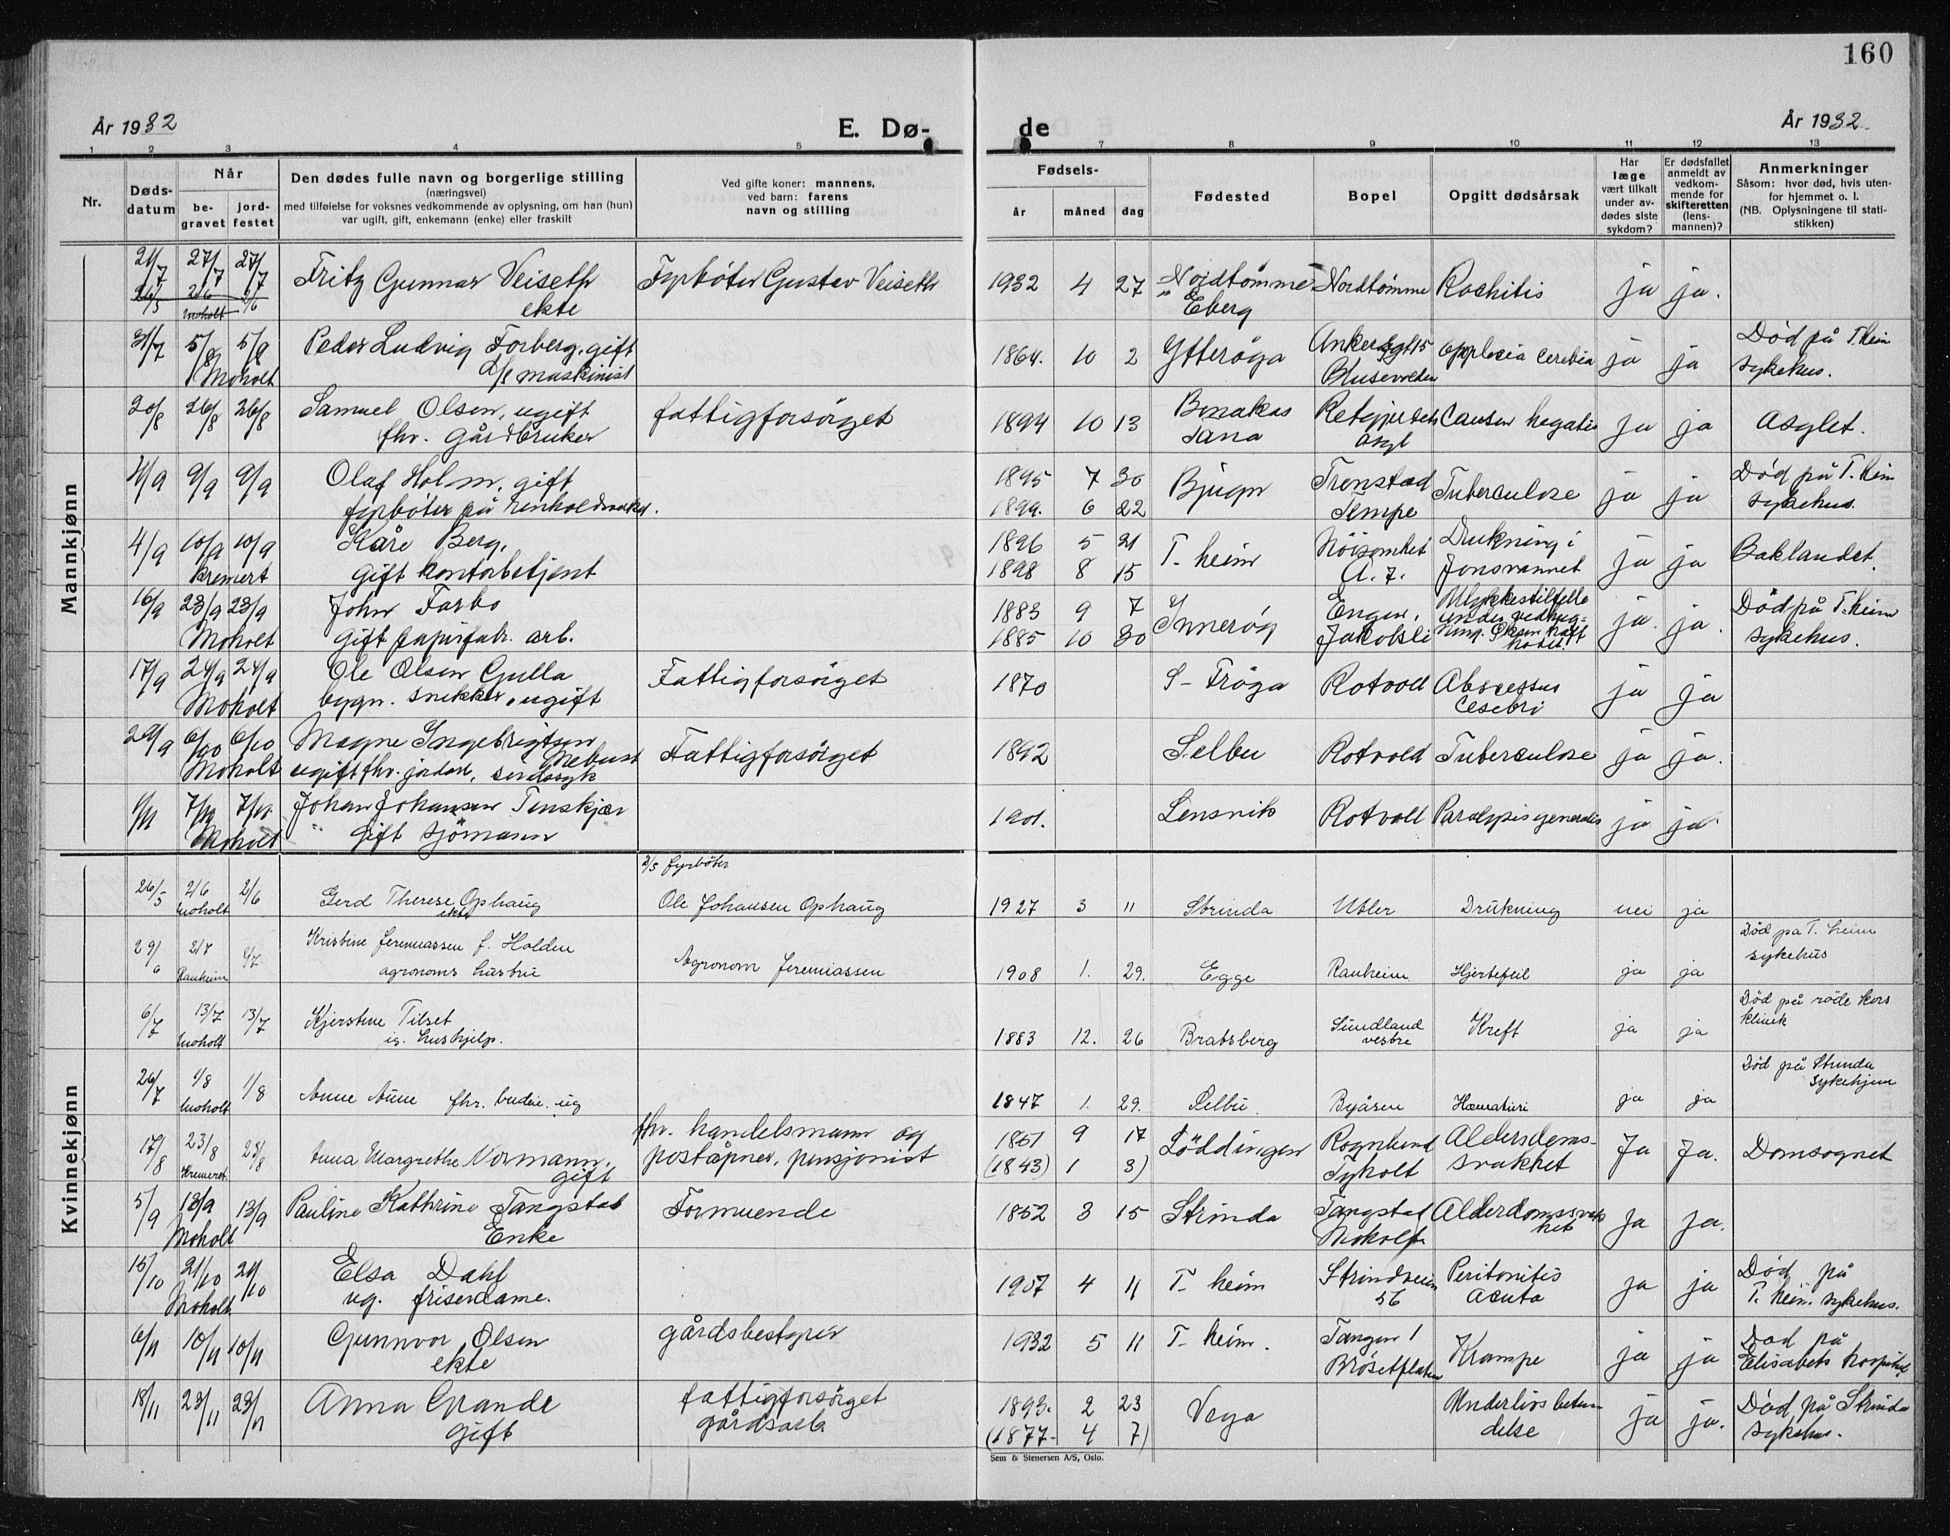 160
År 1932
E. Dø-
de
År 1932.
1 2 3 4 5 7 8 9 10 11 12 13
Nr.
Døds-
datum
Når
be-
gravet
jord-
festet
Den dødes fulle navn og borgerlige stilling
(næringsvei)
med tilføielse for voksnes vedkommende av oplysning, om han (hun)
var ugift, gift, enkemann (enke) eller fraskilt
Ved gifte koner: mannens,
ved barn: farens
navn og stilling
Fødsels-
år måned dag
Fødested
Bopel
Opgitt dødsårsak
Har
læge
vært tilkalt
under av-
dødes siste
sykdom?
Er dødsfallet
anmeldt av
vedkom-
mende for
skifteretten
(lens-
mannen)?
Anmerkninger
Såsom: hvor død, hvis uten-
for hjemmet o. l.
(NB. Oplysningene til stati-
stikken)
Mannkjønn
21/7 27/7 27/7 Fritz Gunnar Veiseth Fyrbøter Gustav Veiseth 1932 4 27 Nordtømme Nordtømme Rachitis ja ja.
26/5 2/6 2/6 ekte Eberg
Moholt
31/7 5/8 5/8 Peder Ludvig Forberg, gift 1864. 10 2 Ytterøya ja ja Død på T.heim
Moholt maskinist sykehus.
20/8 26/8 26/8 Samuel Olsen, ugift fattigforsørget 1894 10 13 Tana ja ja Asylet.
fhv. gårdbruker
9/9 9/9 Olaf Holm, gift 1895 7 30 Bjugn Tronstad Tuberculose ja ja Død på T. heim
fyrbøter på 1899. 6 22 Tempe sykehus.
4/9 10/9 10/9 Kåre Berg, 1896 5 21 T. heim Nöisomhet Drukning i ja ja Baklandet.
kremert gift kontorbetjent 1898 8 15 Jonsvannet
16/9 23/9 23/9 John Farbo 1883 9 7 Inderøy Engen, Ulykkestilfelle ja. ja. Död på T.heim
Moholt gift papirfabr. arb. 1885 10 30 Jakobsli under sykehus.
17/9 24/9 24/9 Ole Olsen Gulla Fattigforsörget 1870 S- Fröya Rotvoll Abscessus ja ja
Moholt bygn. snekker, ugift Cerebri
29/9 6/10 6/10 Magne Ingebrigtsen Fattigforsörget 1892 Selbu Rotvold Tuberculose ja ja.
Moholt Mebust
ugift fhv. sindssyk
Johan Johansen Tenskjær 1901. Lensvik Rotvoll Paralysis generalis ja ja
Moholt gift sjömann
Kvinnekjønn
fyrbøter
26/5 2/6 2/6 Gerd Therese Ophaug Ole Johansen Ophaug 1927 3 11 Strinda Utler Drukning nei ja
Moholt ekte
29/6 2/7 2/7 Kristine Jeremiassen f. Holden Agronom Jeremiassen 1908 1. 29. Egge Ranheim Hjertefeil ja ja Död på T. heim
Ranheim agronoms hustru sykehus
6/7 13/7 13/7 Kjerstine Tilset 1883 12. 26 Bratsberg Sundland Kreft ja ja Död på röde kors
Moholt ug. hushjelp. vestre klinik
26/7 1/8 1/8 Anne Aune fhv. budeie. ug 1847 1. 29. Selbu Byåsen Hæmaturi ja ja Död på Strinda
Moholt sykehjem
17/8 23/8 23/8 Anna Margrethe Normann, fhv. handelsmann og 1851 9 17 Löddingen Rognlund Alderdoms- Ja Ja. Domsognet
Kremeret gift poståpner, pensjonist (1843) 1 3) Tyholt svakhet
5/9 13/9 13/9 Pauline Kathrine Tangstad Formuende 1852 3 15 Strinda Tangstad ja ja.
Moholt Enke Moholt
15/10 21/10 21/10 Elsa Dahl 1907 4 11 T- heim Strindveien Peritonitis ja ja Död på
Moholt ug. friserdame. 56 Acuta T. heim. sykehus.
6/11 10/11 10/11 Gunnvor Olsen gårdsbestyrer 1932 5 11 T- heim. Tangen 1 Krampe ja ja Død på
ekte Brøsetflaten Elisabets hospital
18/11 23/11 23/11 Anna Grande fattigforsörget 1893. 2 23 Vega Underlivsbeten- ja ja. Död på Strinda
gift gårdsarb. (1877- 4 7) delse sykehus.
Sem & Stenersen A/S, Oslo.